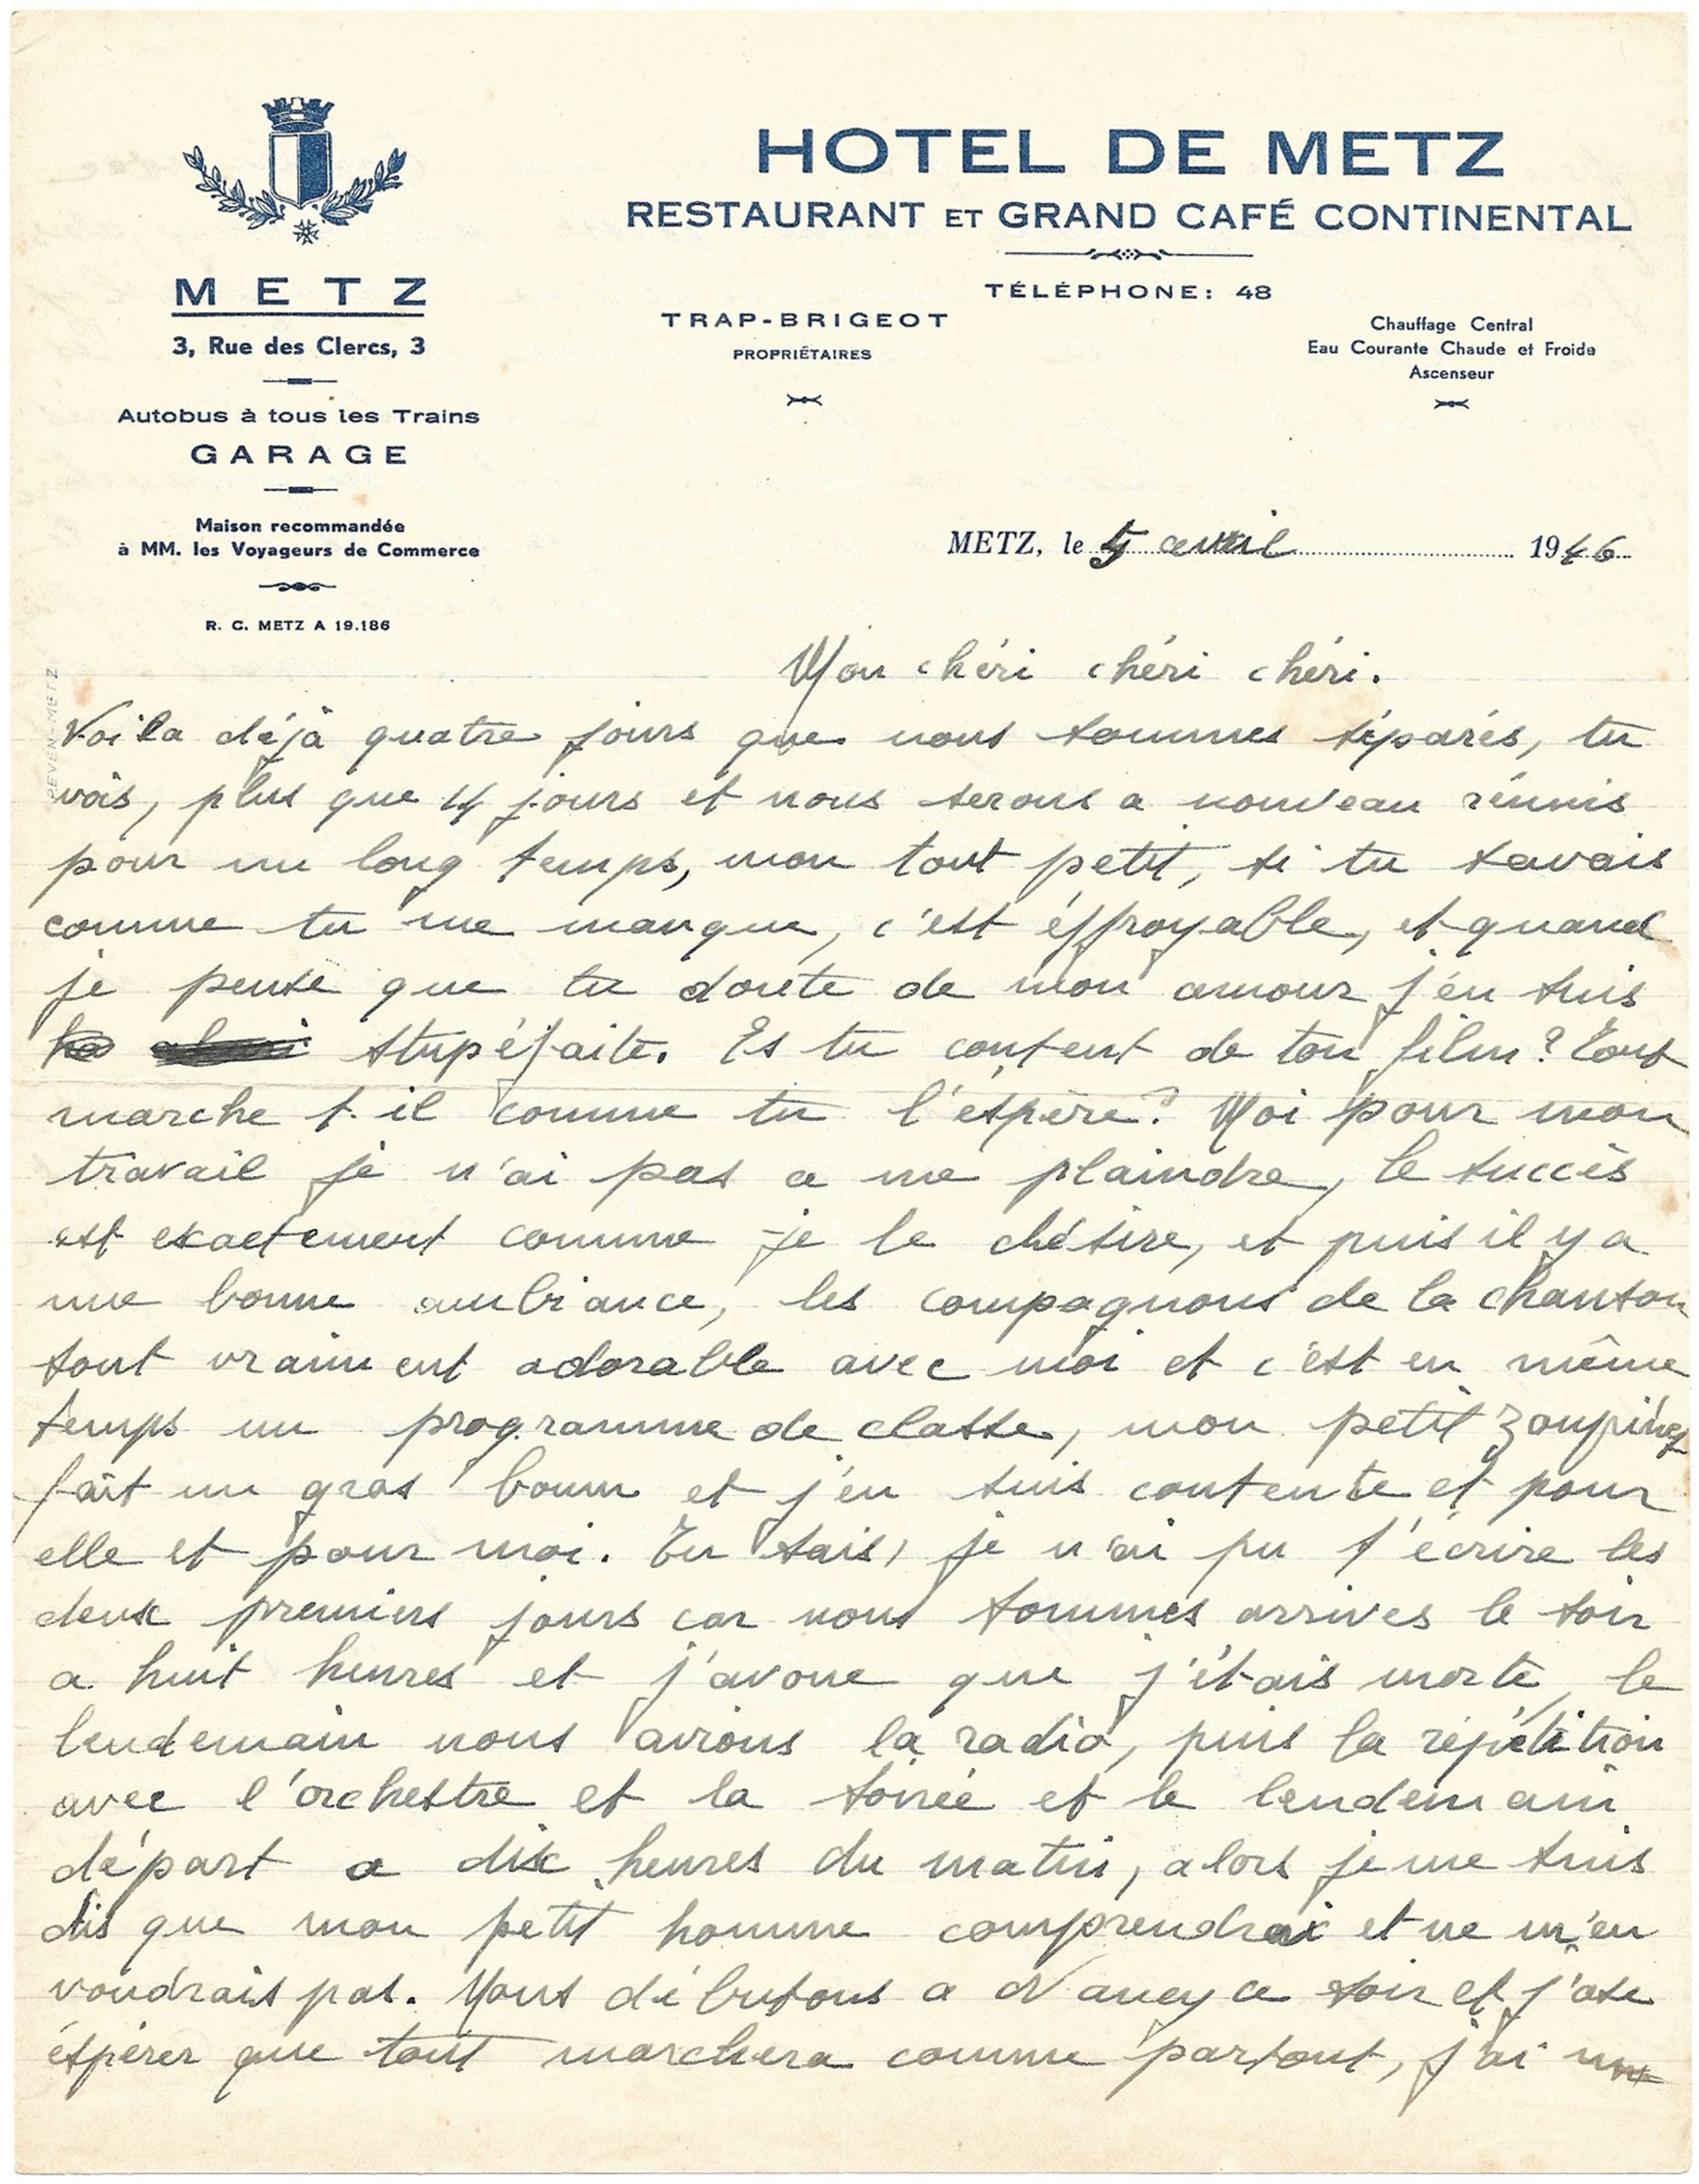 HOTEL DE METZ
RESTAURANT ET GRAND CAFÉ CONTINENTAL
TÉLÉPHONE: 48
TRAP-BRIGEOT
PROPRIÉTAIRES
Chauffage Central
Eau Courante Chaude et Froide
Ascenseur
METZ
3, Rue des Clercs, 3
Autobus à tous les Trains
GARAGE
Maison recommandée
à MM. les Voyageurs de Commerce
R. C. METZ A 19.186
METZ, le 5 avril 1946
Mon chéri chéri chéri.
Voila déjà quatre jours que nous sommes séparés, tu
vois, plus que 14 jours et nous serons a nouveau réunis
pour un long temps, mon tout petit, si tu savais
comme tu me manque, c'est éffroyable, et quand
je pense que tu doute de mon amour j'en suis
stupéfaite. Es tu content de ton film? Tout
marche t-il comme tu l'éspère? Moi pour mon
travail je n'ai pas a me plaindre, le succès
est exactement comme je le désire, et puis il y a
une bonne ambiance, les compagnons de la chanson
sont vraiment adorable avec moi et c'est en même
temps un programme de classe, mon petit
fait un gros boum et j'en suis contente et pour
elle et pour moi. Tu sais, je n'ai pu t'écrire les
deux premiers jours car nous sommes arrives le soir
a huit heures et j'avoue que j'étais morte, le
lendemain nous avions la radio, puis la répétition
avec l'orchestre et la soirée et le lendemain
départ a dix heures du matin, alors je me suis
dis que mon petit homme comprendrai et ne m'en
voudrais pas. Nous débutons a Nancy ce soir et j'ose
éspérer que tout marchera comme partout, j'ai